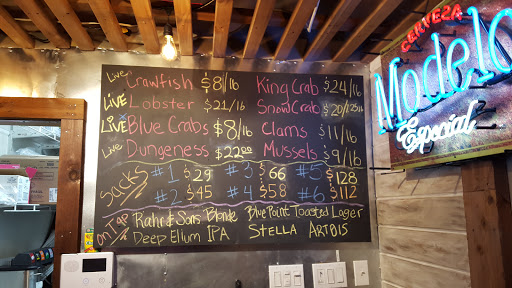 Live Crawfish $8/lb
LIVE Lobster $21/lb
LIVE Blue Crabs $8/lb
Live Dungeness $22.00
King Crab $24/lb
Snow Crab $20/lb
Clams $11/lb
Mussels $9/lb
Sacks #1 $29 #3 $66 #5 $128
#2 $45 #4 $58 #6 $112
on tap
Rahr & Sons Blonde Blue Point Toasted Lager
Deep Ellum IPA STELLA ARTOIS
CERVEZA
Modelo
Especial